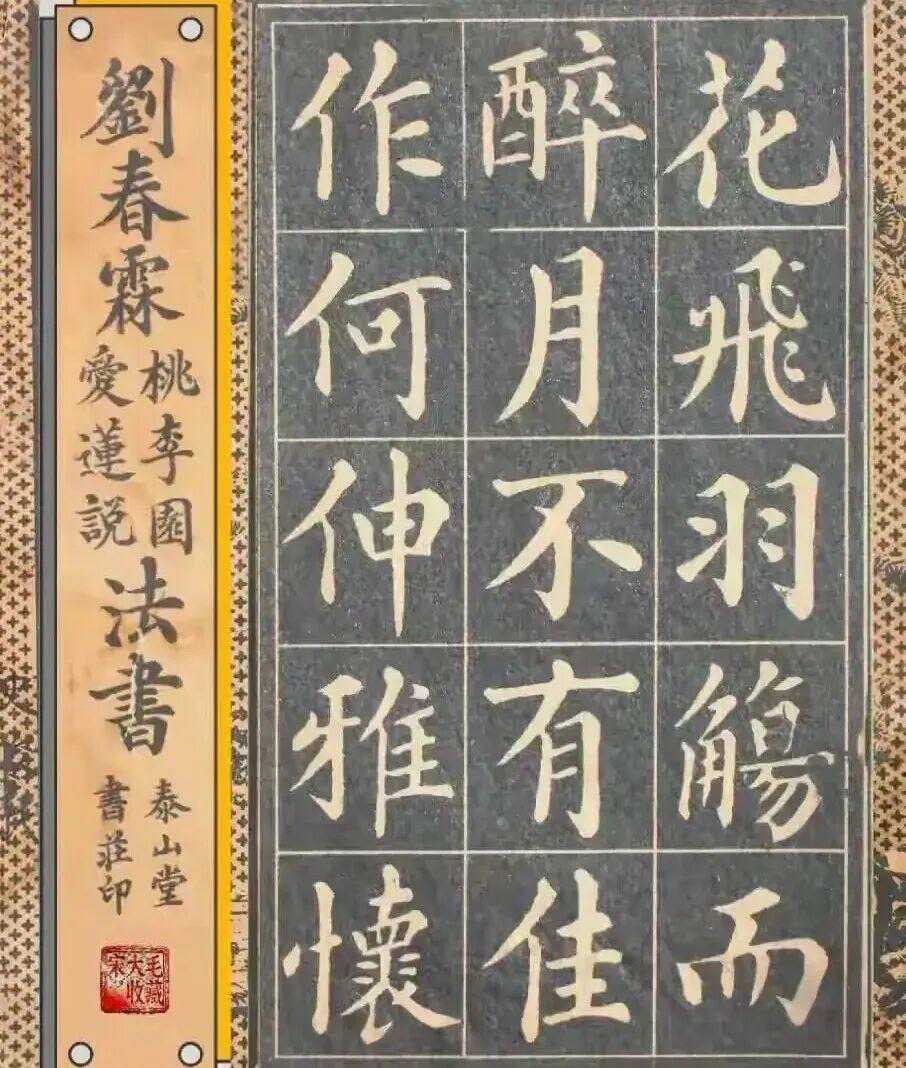 花飛羽觴而
醉月不有佳
作何伸雅懷
劉春霖
桃李園
愛蓮說
法書
泰山堂
書莊印
宋大毛
收藏